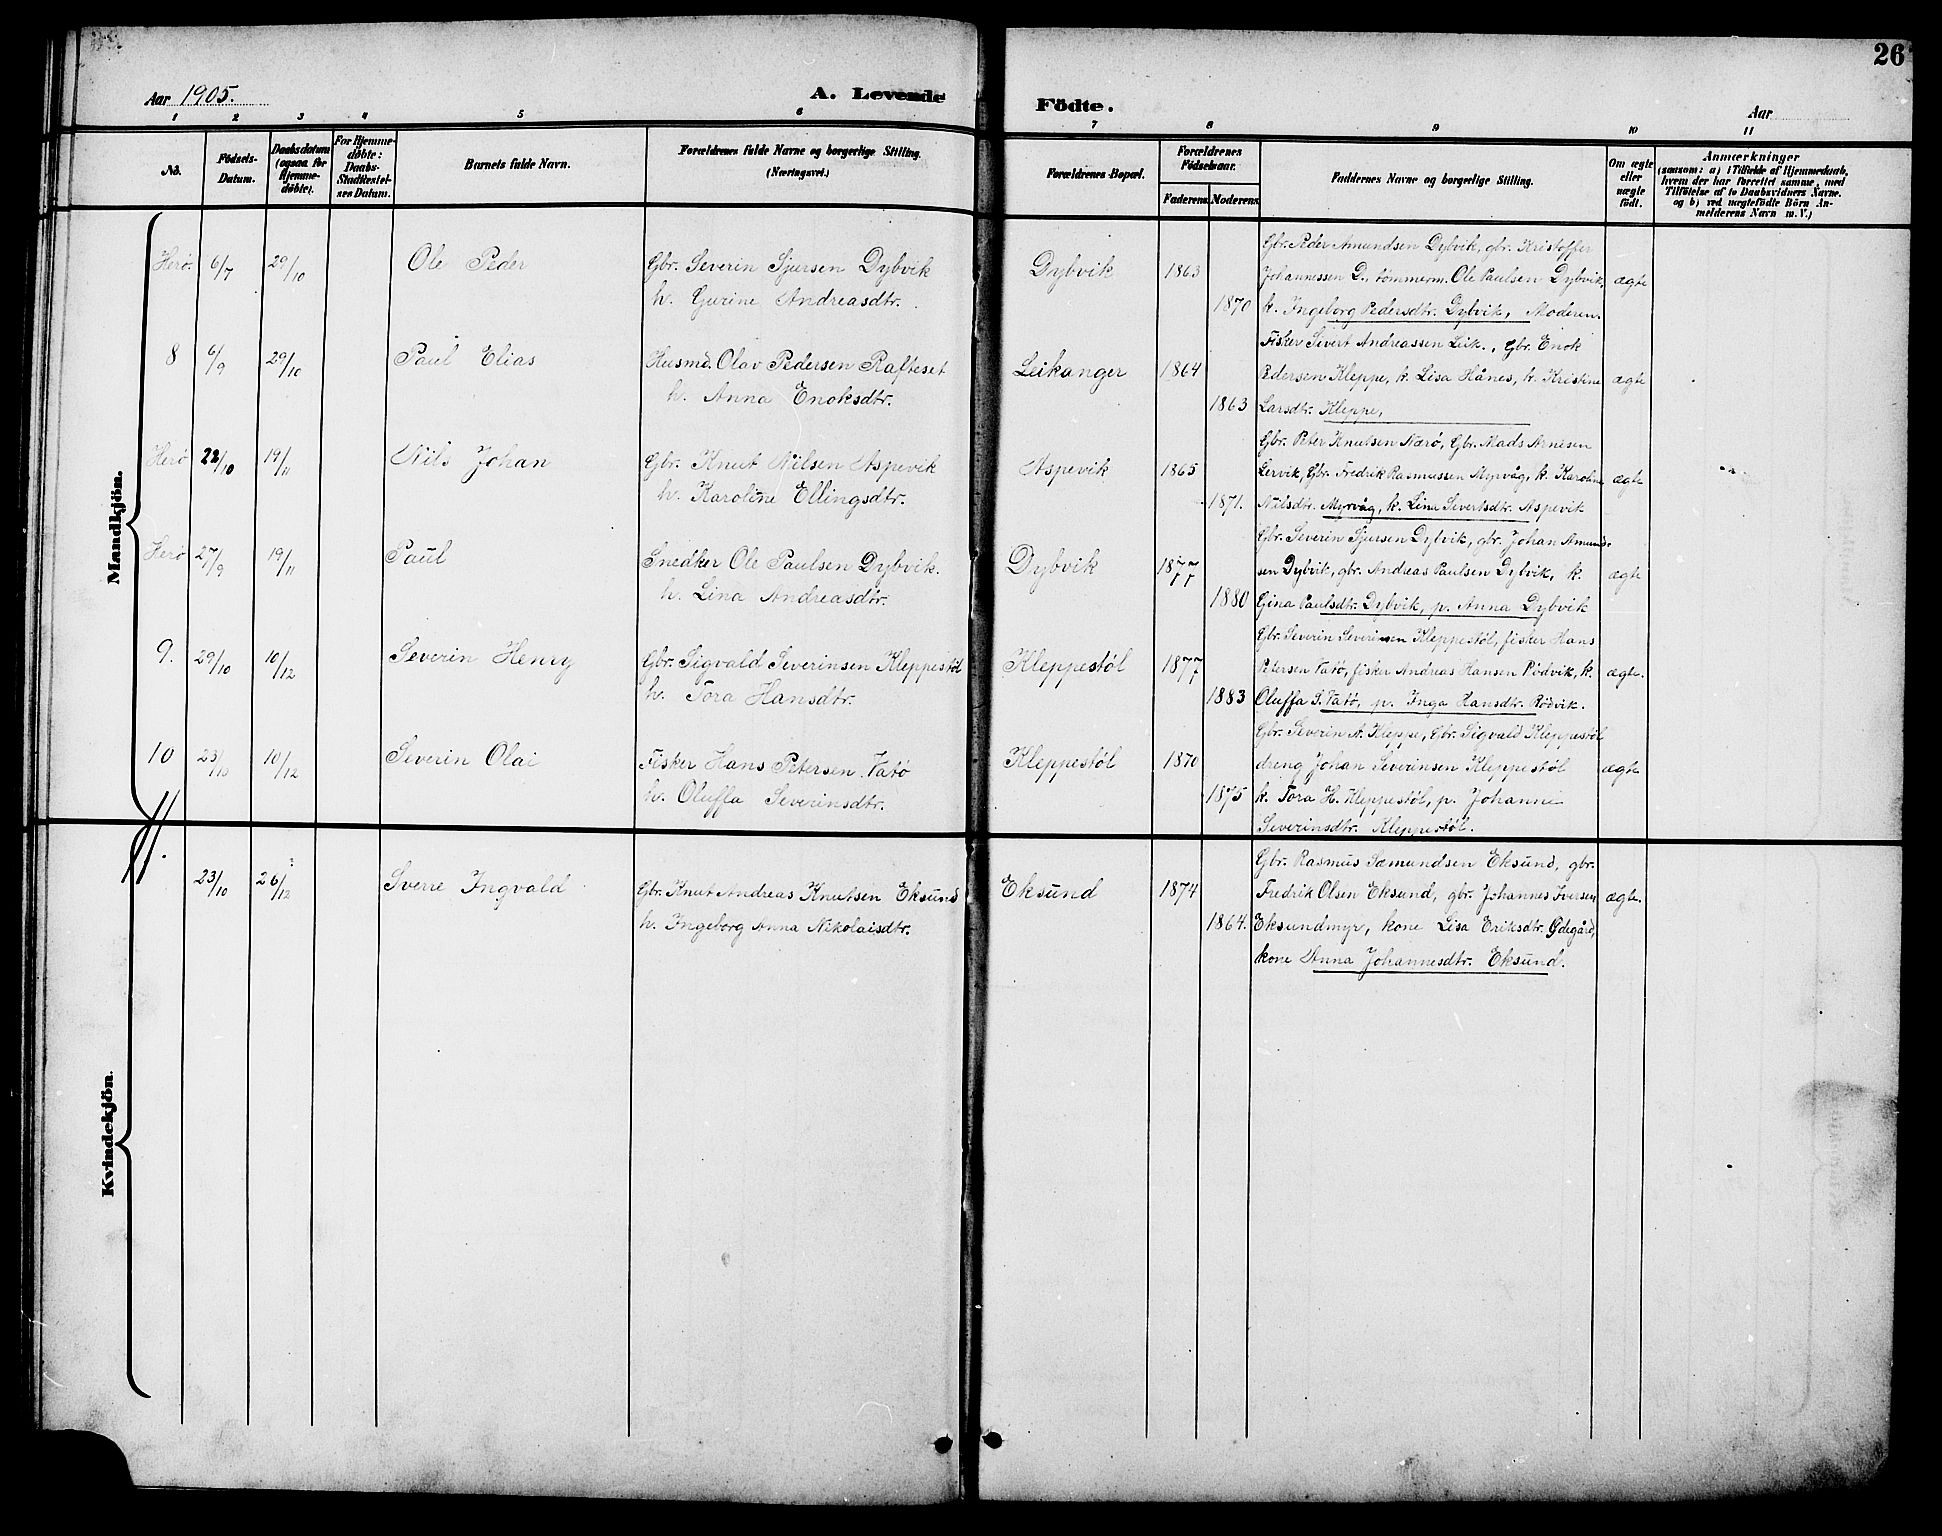 26
Aar 1905.
A. Levende Födte.
Aar
1 2 3 4 5 6 7 8 9 10 11
No.
Födsels-Datum.
Daabsdatum (ogsaa for Hjemmedöbte).
For Hjemmedöbte: Daabs-Stadfestelses Datum.
Barnets fulde Navn.
Forældrenes fulde Navne og borgerlige Stilling.
(Næringsvei.)
Forældrenes Bopæl.
Forældrenes Födselsaar.
Faderens. Moderens.
Faddernes Navne og borgerlige Stilling.
Om ægte eller uægte födt.
Anmærkninger
(saasom: a) i Tilfælde af Hjemmedaab,
hvem der har forrettet samme, med
Tilföielse af to Daabsvidners Navne.
og b) ved uægtefödte Börn An-
melderens Navn m. V.)
Mandkjön.
Herø. 6/7 29/10 Ole Peder Gbr. Severin Sjursen Dybvik Dybvik 1863 Gbr. Peder Amundsen Dybvik, gbr. Kristoffer
Johannessen D., tømmerm. Ole Paulsen Dybvik, ægte
h. Gurine Andreasdtr. 1870 k. Ingeborg Pedersdtr. Dybvik, Moderen.
8 6/9 29/10 Paul Elias Husmd. Olav Pedersen Rafteset Leikanger 1864 Fisker Sivert Andreassen Leik., Gbr. Enok
Pedersen Kleppe, k. Lisa Hånes, k. Kristine ægte
h. Anna Enoksdtr. 1863 Larsdtr. Kleppe,
Herø 22/10 19/11 Nils Johan Gbr. Knut Nilsen Aspevik Aspevik 1865 Gbr. Peter Knutsen Nærø, Gbr. Mads Arnesen
Lervik, Gbr. Fredrik Rasmussen Myrvåg, k. Karoline ægte
h. Karoline Ellingsdtr. 1871. Nilsdtr. Myrvåg, k. Lina Sivertsdtr. Aspevik
Herø 27/9 19/11 Paul Snedker Ole Paulsen Dybvik. Dybvik 1877 Gbr. Severin Sjursen Dybvik, gbr. Johan Amund-
sen Dybvik, gbr. Andreas Paulsen Dybvik, k. ægte
h. Lina Andreasdtr. 1880 Gina Paulsdtr. Dybvik, p. Anna Dybvik
9. 29/10 10/12 Severin Henry Gbr. Sigvald Severinsen Kleppestøl Kleppestøl 1877 Gbr. Severin Severinsen Kleppestøl, fisker Hans
Petersen Vatø, fisker Andreas Hansen Rødvik, k. ægte.
h. Tora Hansdtr. 1883 Oluffa S. Vatø, p. Inga Hansdtr. Rødvik.
10 23/10 10/12 Severin Olai Fisker Hans Petersen Vatø Kleppestøl 1870 Gbr. Severin A. Kleppe, Gbr. Sigvald Kleppestøl
dreng Johan Severinsen Kleppestøl ægte
h. Oluffa Severinsdtr. 1875 k. Tora H. Kleppestøl, p. Johanne
Severinsdtr. Kleppestøl.
11. 23/10 26/12 Sverre Ingvald Gbr. Knut Andreas Knutsen Eksund Eksund 1874 Gbr. Rasmus Sæmundsen Eksund, gbr.
Fredrik Olsen Eksund, gbr. Johannes Iversen ægte.
h. Ingeborg Anna Nikolaisdtr. 1864. Eksundmyr, kone Lisa Eriksdtr. Ødegård,
kone Anna Johannesdtr. Eksund.
Kvindekjön.